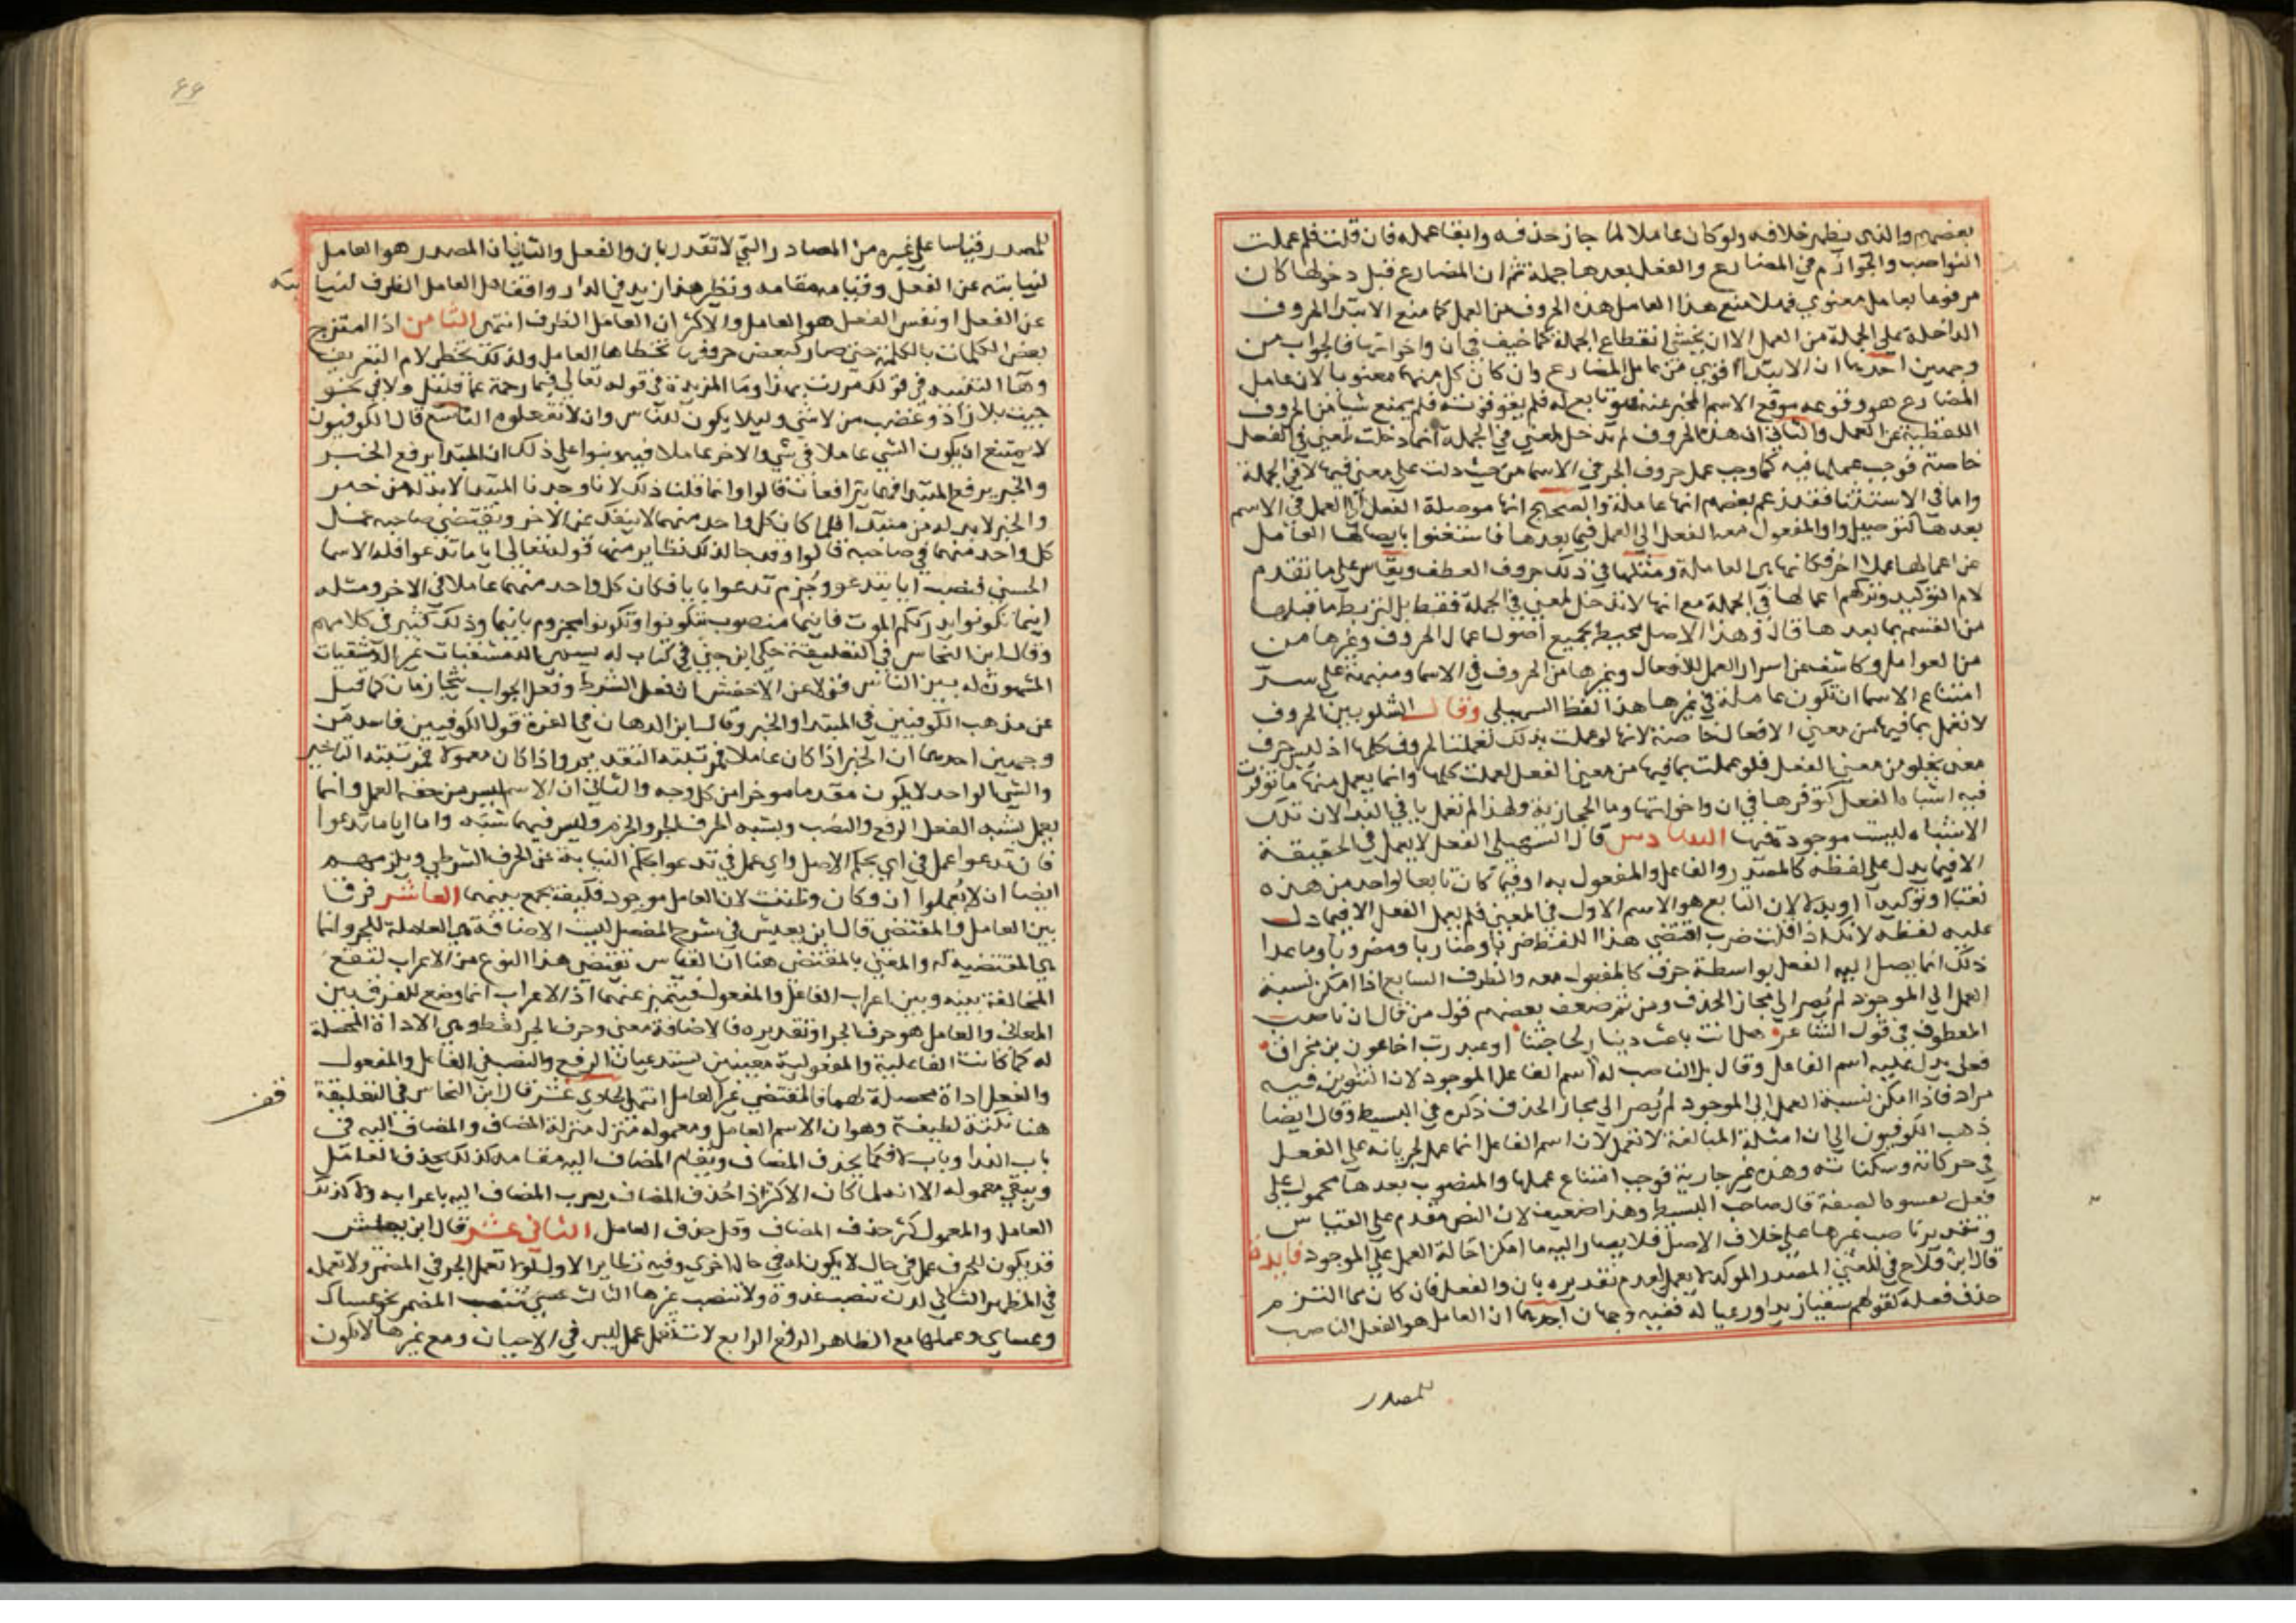 بعضهم والذي يظهر خلافه ولو كان عاملا لما جاز حذفه وابقا عمله فان قلت فلم عملت
النواصب والجوازم في المضارع والفعل بعدها جملة ثم ان المضارع قبل دخولها كان
مرفوعا بعامل معنوي فهلا منع هذا العامل هذه الحروف من العمل كما منع الابتدا الحروف
الداخلة على الجملة من العمل الا ان يخشى انقطاع الجملة كما خيف في ان واخواتها فالجواب من
وجهين احدهما ان الابتدا اقوى من عامل المضارع وان كان كل منهما معنويا لان عامل
المضارع هو وقوعه موقع الاسم المخبر عنه فهو تابع له فلم يقو قوته فلم يمنع شيا من الحروف
اللفظية عن العمل والثاني ان هذه الحروف لم تدخل لمعنى في الجملة انما دخلت لمعنى في الفعل
خاصة فوجب عملها فيه كما وجب عمل حروف الجر في الاسما من حيث دلت على معنى فيها لا في الجملة
واما في الاستثنا فقد زعم بعضهم انها عاملة والصحيح انها موصلة الفعل الى العمل في الاسم
بعدها كتوصيل واو المفعول معه الفعل الى العمل فيما بعدها فاستغنوا بايصالها العامل
عن اعمالها عملا اخر فكانها هي العاملة ومثلها في ذلك حروف العطف ويقاس على ما تقدم
لام التوكيد وتركهم اعمالها في الجملة مع انها لا تدخل لمعنى في الجملة فقط بل لتربط ما قبلها
من القسم بما بعدها قال وهذا الاصل محيط بجميع اصول اعمال الحروف وغيرها من
من العوامل وكاشف عن اسرار العمل للافعال وغيرها من الحروف في الاسما ومنبهة على سر
امتناع الاسما ان تكون عاملة في غيرها هذا لفظ السهيلي وقال الشلوبين الحروف
لا تعمل بما فيها من معنى الافعال خاصة لانها لو عملت بذلك لعملت الحروف كلها اذ ليس حرف
معنى يخلو من معنى الفعل فلو عملت بما فيها من معنى الفعل لعملت كلها وانما يعمل منها ما توفرت
فيه اشباه الفعل كتوفرها في ان واخواتها وما الحجازية ولهذا لم تعمل يا في الندا لان تلك
الاشباه ليست موجودة فيها السادس قال السهيلي الفعل لا يعمل في الحقيقة
الا فيما يدل على لفظه كالمصدر والفاعل والمفعول به او فيما كان تابعا لواحد من هذه
نعتا او توكيدا او بدلا لان التابع هو الاسم الاول في المعنى فلم يعمل الفعل الا فيما دل
عليه لفظه لانك اذا قلت ضرب اقتضى هذا اللفظ ضربا وضاربا ومضروبا وما عدا
ذلك انما يصل اليه الفعل بواسطة حرف كالمفعول معه والظرف السابع اذا امكن نسبة
العمل الى الموجود لم يصر الى مجاز الحذف ومن ثم ضعف بعضهم قول من قال ان ناصب
المعطوف في قول الشاعر هل انت باعث دينار لحاجتنا او عبد رب اخا عون بن مخراق
فعل يدل عليه اسم الفاعل وقال بل الناصب له اسم الفاعل الموجود لان التنوين فيه
مراد فاذا امكن نسبة العمل الى الموجود لم يصر الى مجاز الحذف ذكره في البسيط وقال ايضا
ذهب الكوفيون الى ان امثلة المبالغة لا تعمل لان اسم الفاعل انما عمل لجريانه على الفعل
في حركاته وسكناته وهذه غير جارية فوجب امتناع عملها والمنصوب بعدها محمول على
فعل تفسره الصفة قال صاحب البسيط وهذا ضعيف لان النص مقدم على القياس
وتقدير ناصب غيرها على خلاف الاصل فلا يصار اليه ما امكن احالة العمل على الموجود فايدة
قال ابن فلاح في المغني المصدر الموكد لا يعمل لعدم تقديره بان والفعل فان كان مما التزم
حذف فعله كقولهم سقيا زيدا ورعيا له ففيه وجهان احدهما ان العامل هو الفعل الناصب
للمصدر
٤٤
للمصدر قياسا على غيره من المصادر التي لا تقدر بان والفعل والثاني ان المصدر هو العامل
لنيابته عن الفعل وقيامه مقامه ونظير هذا زيد في الدار واقفا هل العامل الظرف لنيابته
عن الفعل او نفس الفعل هو العامل والاكثر ان العامل الظرف انتهى الثامن اذا امتزج
بعض الكلمات بالكلمة حتى صار كبعض حروفها تخطاها العامل ولذلك تخطى لام التعريف
وها التنبيه في قولك مررت بهذا وما المزيدة في قوله تعالى فبما رحمة عما قليل ولا في نحو
جيت بلا زاد وغضب من لا شي وليلا يكون للناس وان لا تفعلوه التاسع قال الكوفيون
لا يمتنع ان يكون الشي عاملا في شي والاخر عاملا فيه وبنوا على ذلك ان المبتدا يرفع الخبر
والخبر يرفع المبتدا فهما يترافعان قالوا وانما قلنا ذلك لانا وجدنا المبتدا لابد له من خبر
والخبر لابد له من مبتدا فلما كان كل واحد منهما لا ينفك عن الاخر ويقتضي صاحبه عمل
كل واحد منهما في صاحبه قالوا وقد جا لذلك نظاير منها قوله تعالى ايا ما تدعوا فله الاسما
الحسنى فنصب ايا بتدعوا وجزم تدعوا بايا فكان كل واحد منهما عاملا في الاخر ومثله
اينما تكونوا يدرككم الموت فاينما منصوب بتكونوا وتكونوا مجزوم باينما وذلك كثير في كلامهم
وقال ابن النحاس في التعليقة حكى ابن جني في كتاب له يسمى الدمشقيات غير الدمشقيات
المشهورة له بين الناس قولا عن الاخفش ان فعل الشرط وفعل الجواب يتجازمان كما قيل
عن مذهب الكوفيين في المبتدا والخبر وقال ابن الدهان في الغرة قول الكوفيين فاسد من
وجهين احدهما ان الخبر اذا كان عاملا فمرتبته التقديم واذا كان معمولا فمرتبته التاخير
والشي الواحد لا يكون مقدما موخرا من كل وجه والثاني ان الاسم ليس من حقه العمل وانما
يعمل بشبه الفعل الرفع والنصب وبشبه الحرف الجر والجزم وليس فيهما شبه واما ايا ما تدعوا
فان تدعوا عمل في اي بحكم الاصل واي عمل في تدعوا بحكم النيابة عن الحرف الشرطي ويلزمهم
ايضا ان لا يعملوا ان وكان وظننت لان العامل موجود فكيف يجمع بينهما العاشر فرق
بين العامل والمقتضي قال ابن يعيش في شرح المفصل ليست الاضافة هي العاملة للجر وانما
هي المقتضية له والمعنى بالمقتضي هنا ان القياس يقتضي هذا النوع من الاعراب لتقع
المخالفة بينه وبين اعراب الفاعل والمفعول فيتميز عنهما اذ الاعراب انما وضع للفرق بين
المعاني والعامل هو حرف الجر او تقديره فالاضافة معنى وحرف الجر لفظ وهي الاداة المحصلة
له كما كانت الفاعلية والمفعولية معنيين يستدعيان الرفع والنصب في الفاعل والمفعول
والفعل اداة محصلة لهما فالمقتضي غير العامل انتهى الحادي عشر قال ابن النحاس في التعليقة
قف
هنا نكتة لطيفة وهو ان الاسم العامل ومعموله تنزل منزلة المضاف والمضاف اليه في
باب الندا وباب لا فكما يحذف المضاف ويقام المضاف اليه مقامه كذلك يحذف العامل
ويبقى معموله الا انه لما كان الاكثر اذا حذف المضاف يعرب المضاف اليه باعرابه ولا كذلك
العامل والمعمول كثر حذف المضاف وقل حذف العامل الثاني عشر قال ابن يعيش
قد يكون للحرف عمل في حال لا يكون له في حال اخرى وفيه نظاير الاول لولا تعمل الجر في المضمر ولا تعمله
في المظهر الثاني لدن تنصب غدوة ولا تنصب غيرها الثالث عسى تنصب المضمر نحو عساك
وعساي وعملها مع الظاهر الرفع الرابع لات تعمل عمل ليس في الاحيان ومع غيرها لا يكون